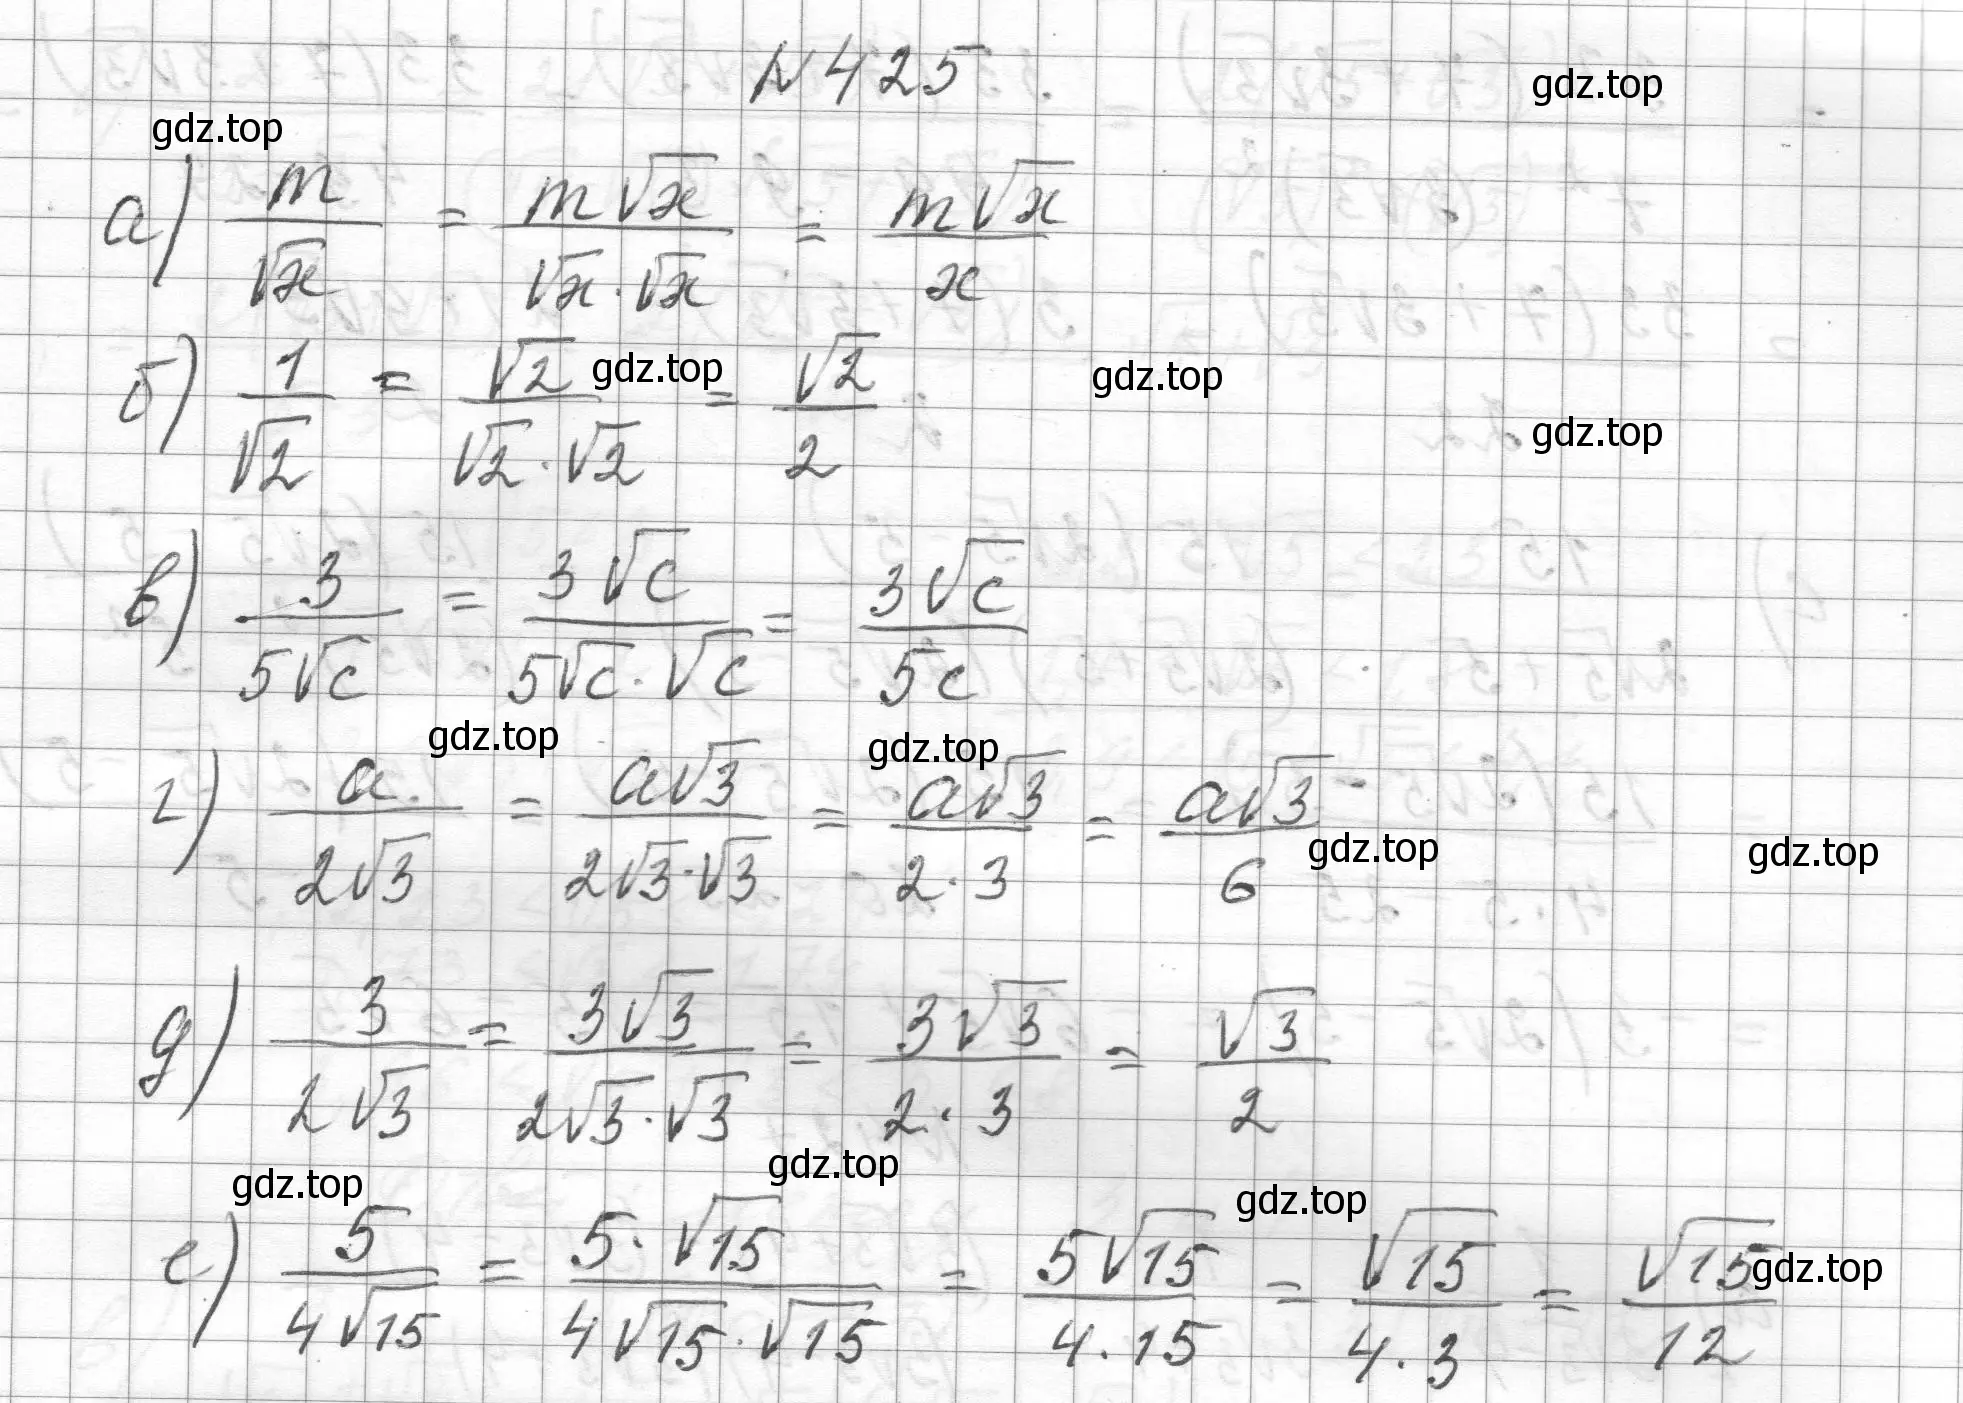 N 425.
gdz.top
gdz.top
а) m/√x = m√x/(√x · √x) = m√x/x
б) 1/√2 = √2/(√2 · √2) = √2/2
gdz.top
gdz.top
gdz.top
в) 3/(5√c) = 3√c/(5√c · √c) = 3√c/(5c)
gdz.top
gdz.top
г) a/(2√3) = a√3/(2√3 · √3) = a√3/(2 · 3) = a√3/6
gdz.top
gdz.top
д) 3/(2√3) = 3√3/(2√3 · √3) = 3√3/(2 · 3) = √3/2
gdz.top
gdz.top
gdz.top
е) 5/(4√15) = 5 · √15/(4√15 · √15) = 5√15/(4 · 15) = √15/(4 · 3) = √15/12
gdz.top